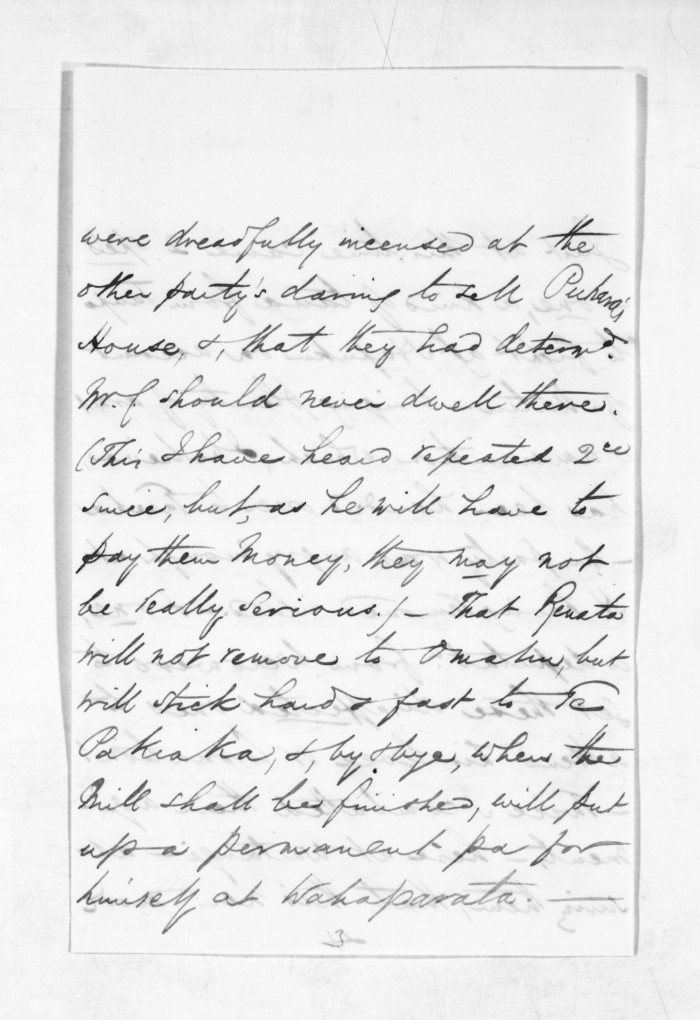 were dreadfully incensed at the
other party's daring to sell Puhara's
House, &, that they had determd.
Mr. C should never dwell there.
(This I have heard repeated 2ce
since, but, as he will have to
pay them Money, they may not
be really serious.) — That Renata
will not remove to Omahu, but
will stick hard & fast to Te
Pakiaka, &, by & bye, when the
Mill shall be finished, will put
up a permanent pa for
himself at Wahaparata. —
3